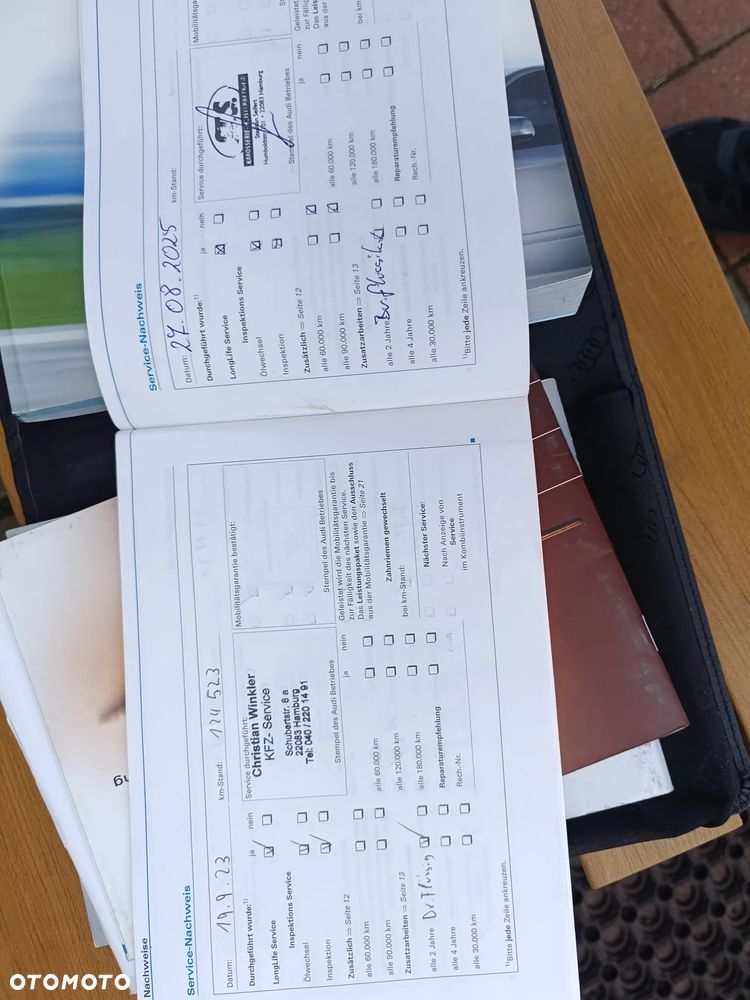 Nachweise
Service-Nachweis
Datum: 19.9.23 km-Stand: 124 523
Durchgeführt wurde:¹⁾ ja nein
LongLife Service
Inspektions Service
Ölwechsel
Inspektion
Service durchgeführt:
Christian Winkler
KFZ- Service
Schubertstr. 8 a
22083 Hamburg
Tel: 040 / 220 14 91
Stempel des Audi Betriebes
Mobilitätsgarantie bestätigt:
Stempel des Audi Betriebes
Zusätzlich ⇒ Seite 12 ja nein
alle 60.000 km
alle 90.000 km
alle 60.000 km
alle 120.000 km
alle 180.000 km
Zusatzarbeiten ⇒ Seite 13
alle 2 Jahre Br. Flüssig
alle 4 Jahre
alle 30.000 km
Reparaturempfehlung
Rech.-Nr.
Geleistet wird die Mobilitätsgarantie bis
zur Fälligkeit des nächsten Service.
Das Leistungspaket sowie den Ausschluss
aus der Mobilitätsgarantie ⇒ Seite 21
Zahnriemen gewechselt
bei km-Stand:
Nächster Service:
Nach Anzeige von
Service
im Kombiinstrument
¹⁾Bitte jede Zeile ankreuzen.
Service-Nachweis
Datum: 27.08.2025 km-Stand:
Durchgeführt wurde:¹⁾ ja nein
LongLife Service
Inspektions Service
Ölwechsel
Inspektion
Service durchgeführt:
22083 Hamburg
Stempel des Audi Betriebes
Zusätzlich ⇒ Seite 12 ja nein
alle 60.000 km
alle 90.000 km
alle 60.000 km
alle 120.000 km
alle 180.000 km
Zusatzarbeiten ⇒ Seite 13
alle 2 Jahre
alle 4 Jahre
alle 30.000 km
Reparaturempfehlung
Rech.-Nr.
¹⁾Bitte jede Zeile ankreuzen.
OTOMOTO